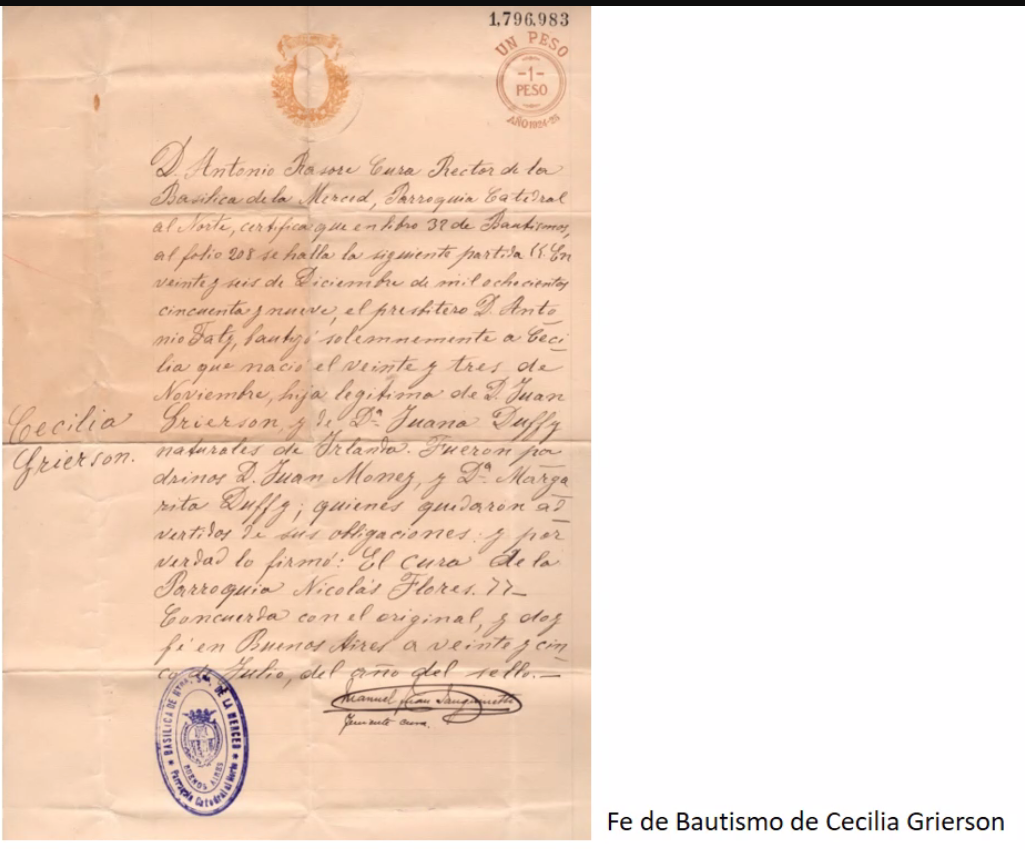 1.796.983
UN PESO
-1-
PESO
AÑO 1924-25
D. Antonio Rasore Cura Rector de la
Basilica de la Merced, Parroquia Catedral
al Norte, certifica que en libro 32 de Bautismos,
al folio 208 se halla la siguiente partida "En
veinte y seis de Diciembre de mil ochocientos
cincuenta y nueve, el presbitero D. Anto
nio Faty, bautizó solemnemente a Ceci
lia que nació el veinte y tres de
Noviembre, hija legitima de D. Juan
Grierson, y de Dª Juana Duffy
naturales de Irlanda. Fueron pa
drinos D. Juan Monez, y Dª Marga
rita Duffy; quienes quedaron ad
vertidos de sus obligaciones: y por
verdad lo firmó: El cura de la
Parroquia Nicolás Flores."–
Concuerda con el original, y doy
fé en Buenos Aires a veinte y cin
co de Julio, del año del sello.–
Cecilia
Grierson.
Manuel Juan Sanguinetti
Teniente cura.
BASILICA DE NTRA. SRA. DE LA MERCED
BUENOS AIRES
Parroquia Catedral al Norte
Fe de Bautismo de Cecilia Grierson